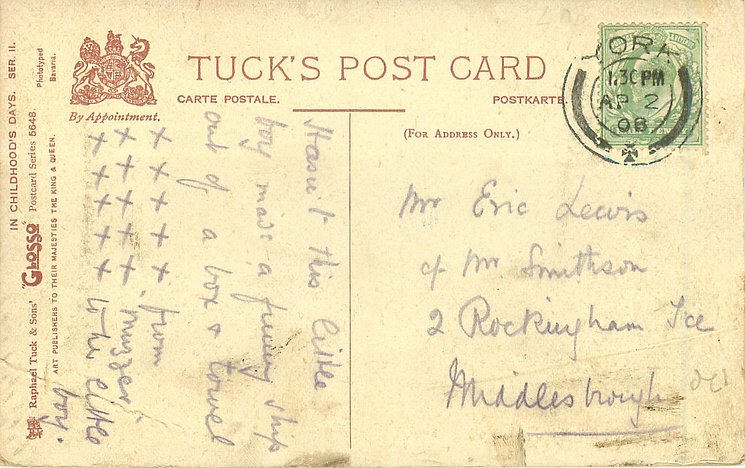 TUCK'S POST CARD
CARTE POSTALE.
POSTKARTE.
By Appointment.
(FOR ADDRESS ONLY.)
YORK
1.30 PM
AP 2
08
Mr Eric Lewis
c/o Mr. Smithson
2 Rockingham Tce
Middlesbrough
Hasn't this little
boy made a funny ship
out of a box & towel
+ + + + + from
+ + + + +
+ + + + + to his little
boy.
IN CHILDHOOD'S DAYS. SER. II.
Phototyped
Bavaria.
Raphael Tuck & Sons' "GLOSSO" Postcard Series 5648.
ART PUBLISHERS TO THEIR MAJESTIES THE KING & QUEEN.